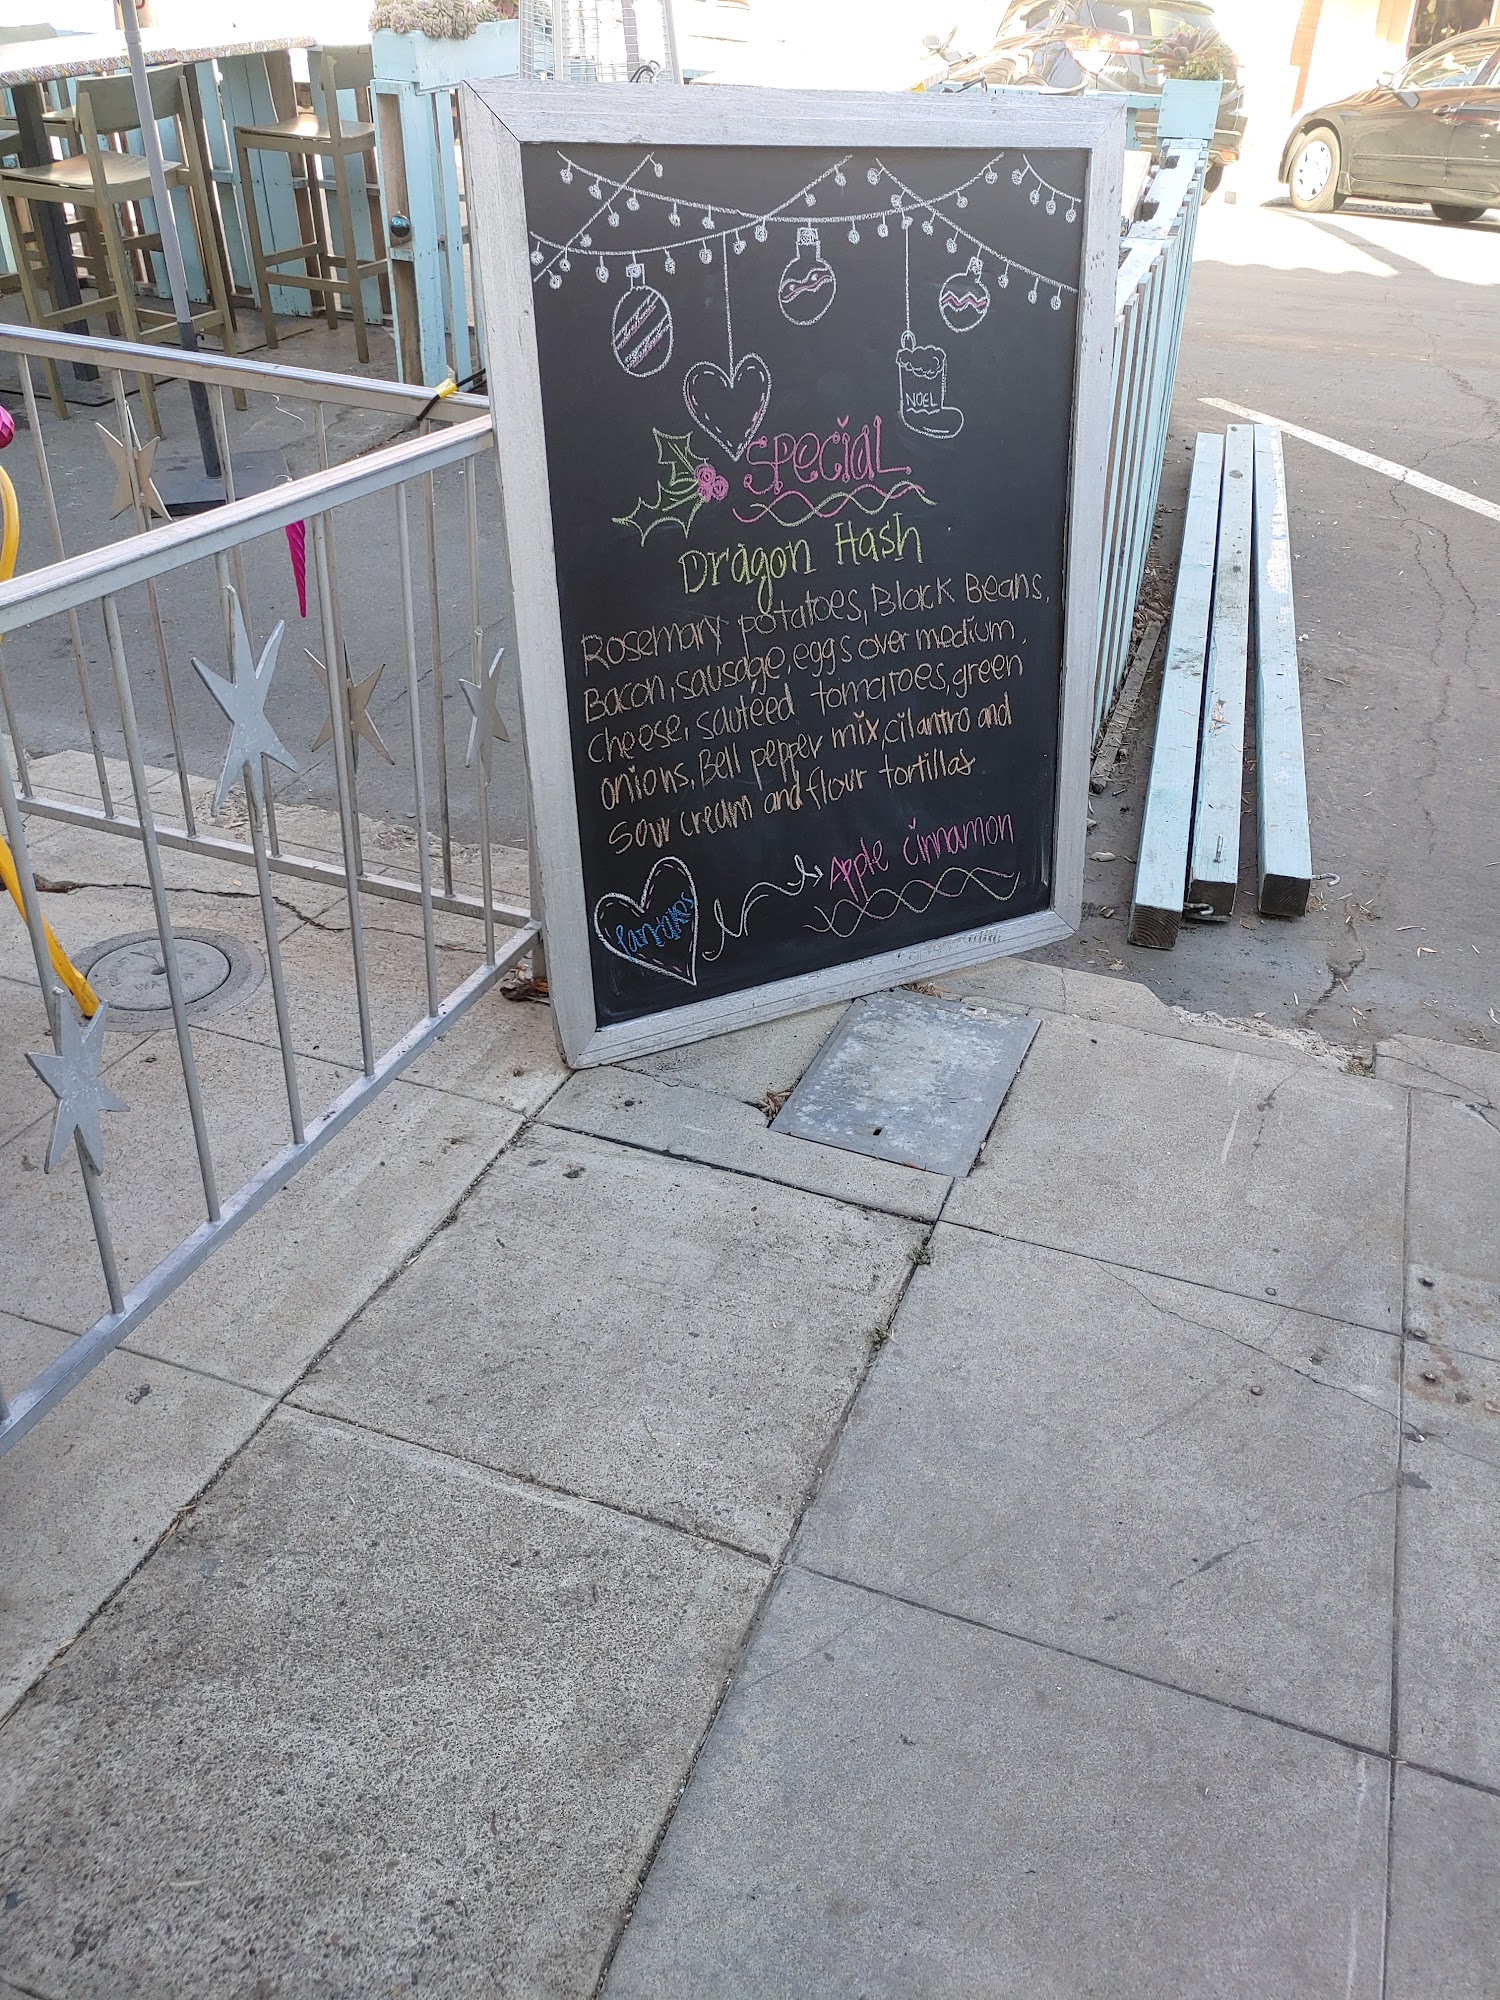 NOEL
SPECiAL
Dragon Hash
Rosemary potatoes, Black Beans,
Bacon, sausage, eggs over medium,
cheese, sautéed tomatoes, green
onions, Bell pepper mix, cilantro and
sour cream and flour tortillas
pancakes Apple cinnamon